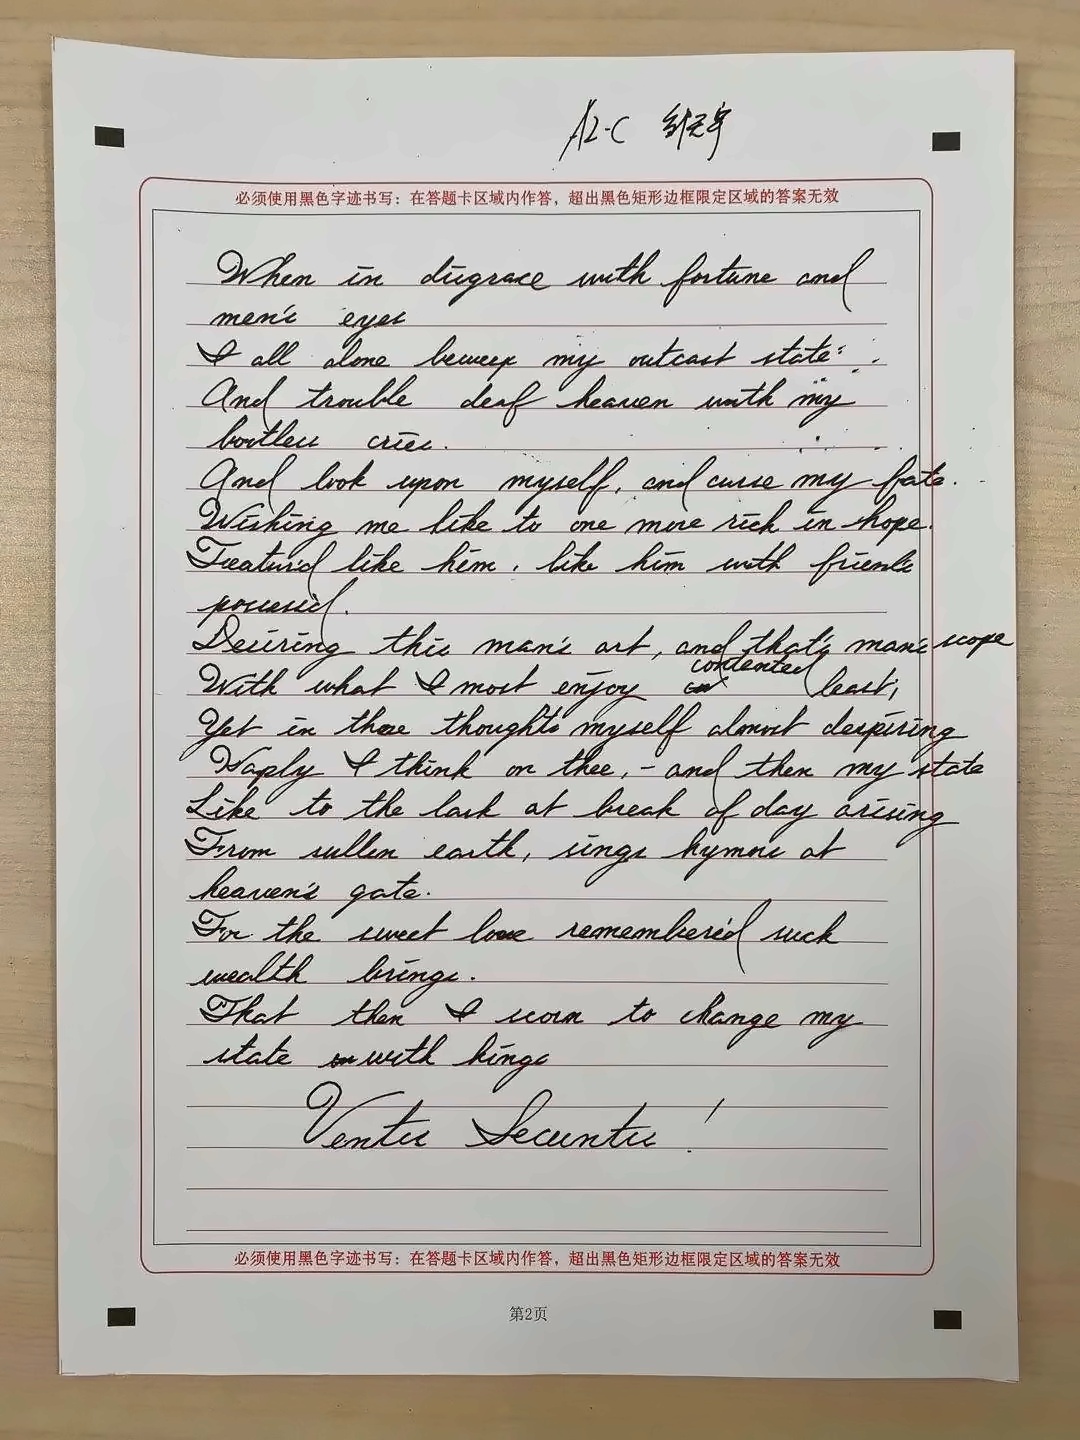 A2-C
必须使用黑色字迹书写：在答题卡区域内作答，超出黑色矩形边框限定区域的答案无效
When in disgrace with fortune and
men's eyes
I all alone beweep my outcast state:
And trouble deaf heaven with my
bootless cries.
And look upon myself, and curse my fate.
Wishing me like to one more rich in hope.
Featur'd like him, like him with friends
possess'd.
Desiring this man's art, and that's man's scope
With what I most enjoy contented least,
Yet in these thoughts myself almost despiring
Haply I think on thee, - and then my state
Like to the lark at break of day arising
From sullen earth, sings hymns at
heaven's gate.
For the sweet love remembered such
wealth brings.
That then I scorn to change my
state with kings
Ventis Secuntis !
必须使用黑色字迹书写：在答题卡区域内作答，超出黑色矩形边框限定区域的答案无效
第2页